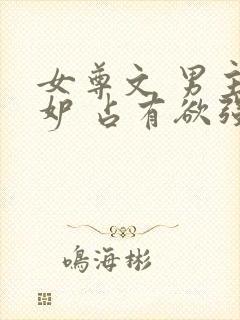 女尊文 男主
妒 占有欲强
鸣海彬